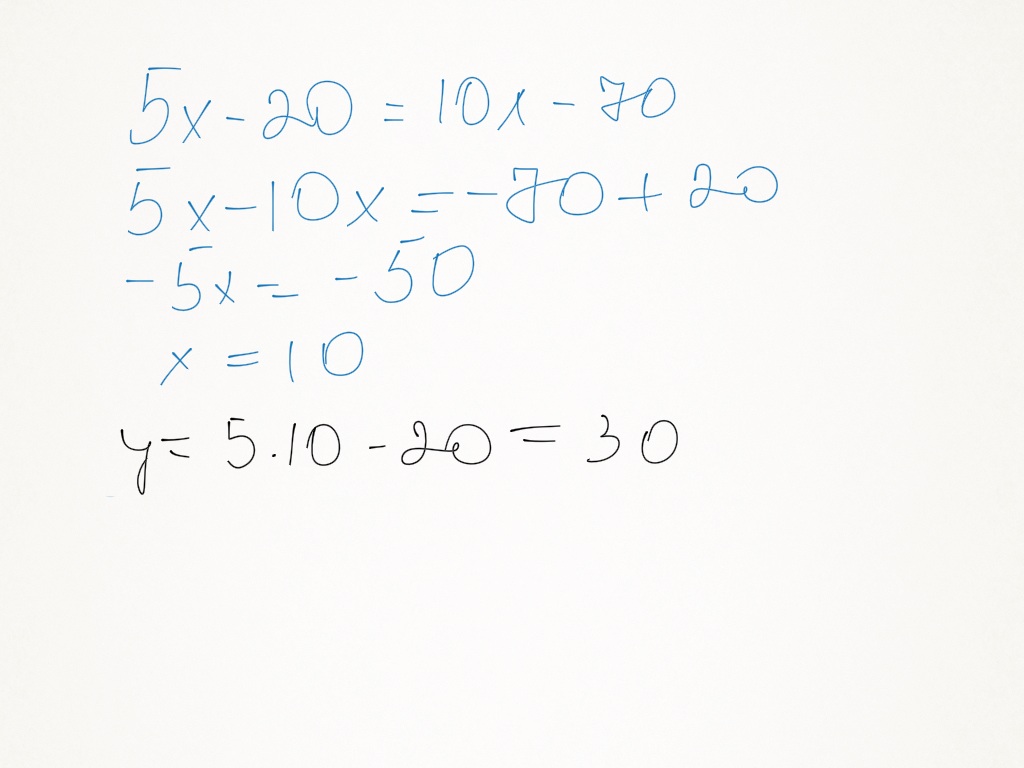 5x - 20 = 10x - 70
5x - 10x = -70 + 20
-5x = -50
x = 10
y = 5.10 - 20 = 30